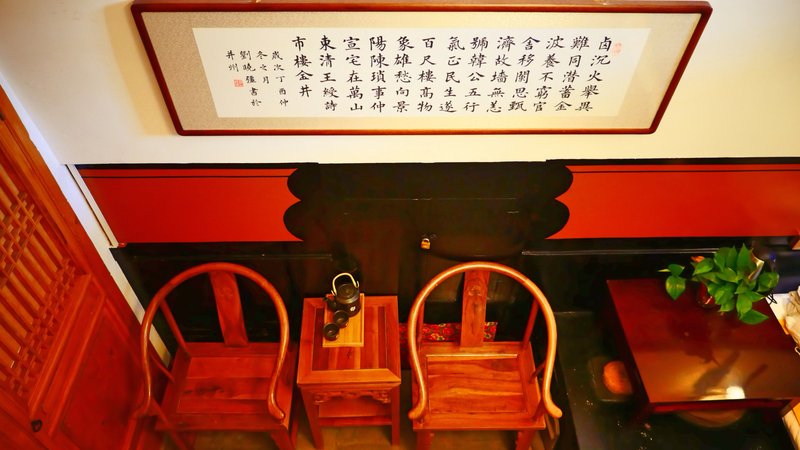 卤沉火舉異
難同潛蓄金
波養不窮官
舍移關思甄
濟故無恙
號韓公五行
氣正民生遂
百尺樓高物
象雄愁向景
陽陳瑣事仲
宣宅在萬山
東清王綬詩
市樓金井
歲次丁酉仲
冬之月
劉曉強書於
并州